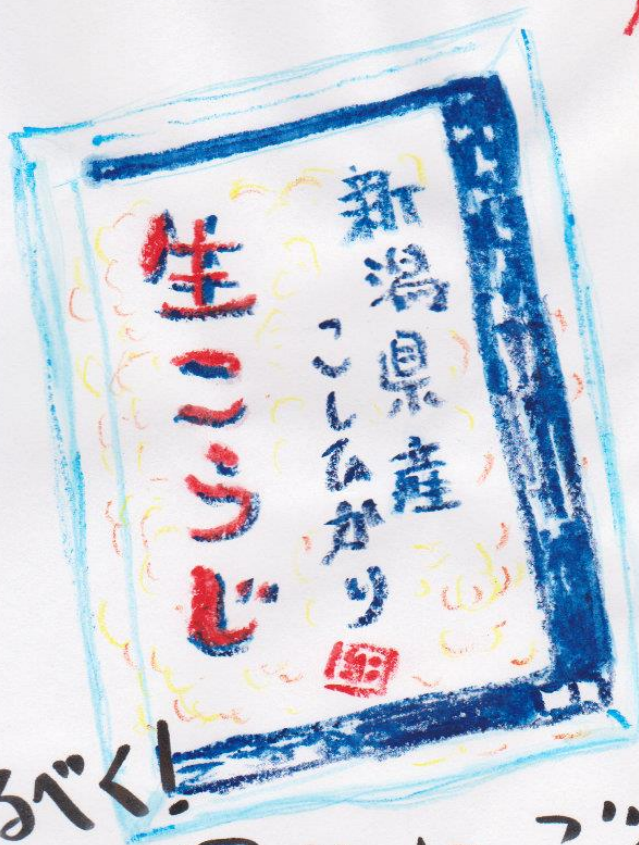 新潟県産
こしひかり
生こうじ
るべく!